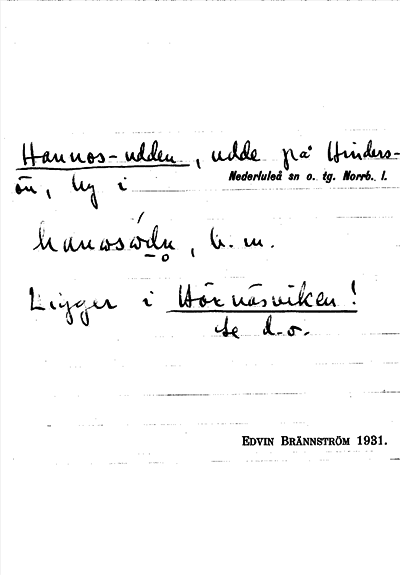 Hannos-udden, udde på Hinders-
ön, by i Nederluleå sn o. tg. Norrb. l.
, b. m.
Ligger i Hörnäsviken!
Se d.o.
EDVIN BRÄNNSTRÖM 1931.